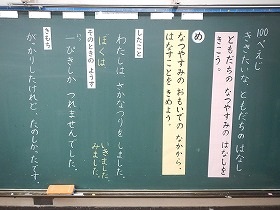 100ぺえじ
ききたいな、ともだちのはなし
ともだちの なつやすみのはなしを
きこう。
め
なつやすみの おもいでの なかから、
はなすことを きめよう。
したこと
わたしは さかなつりを しました。
ぼくは
いきました。
みました。
そのときの ようす
一ぴきしか つれませんでした。
きもち
がっかりしたけれど、たのしかったです。